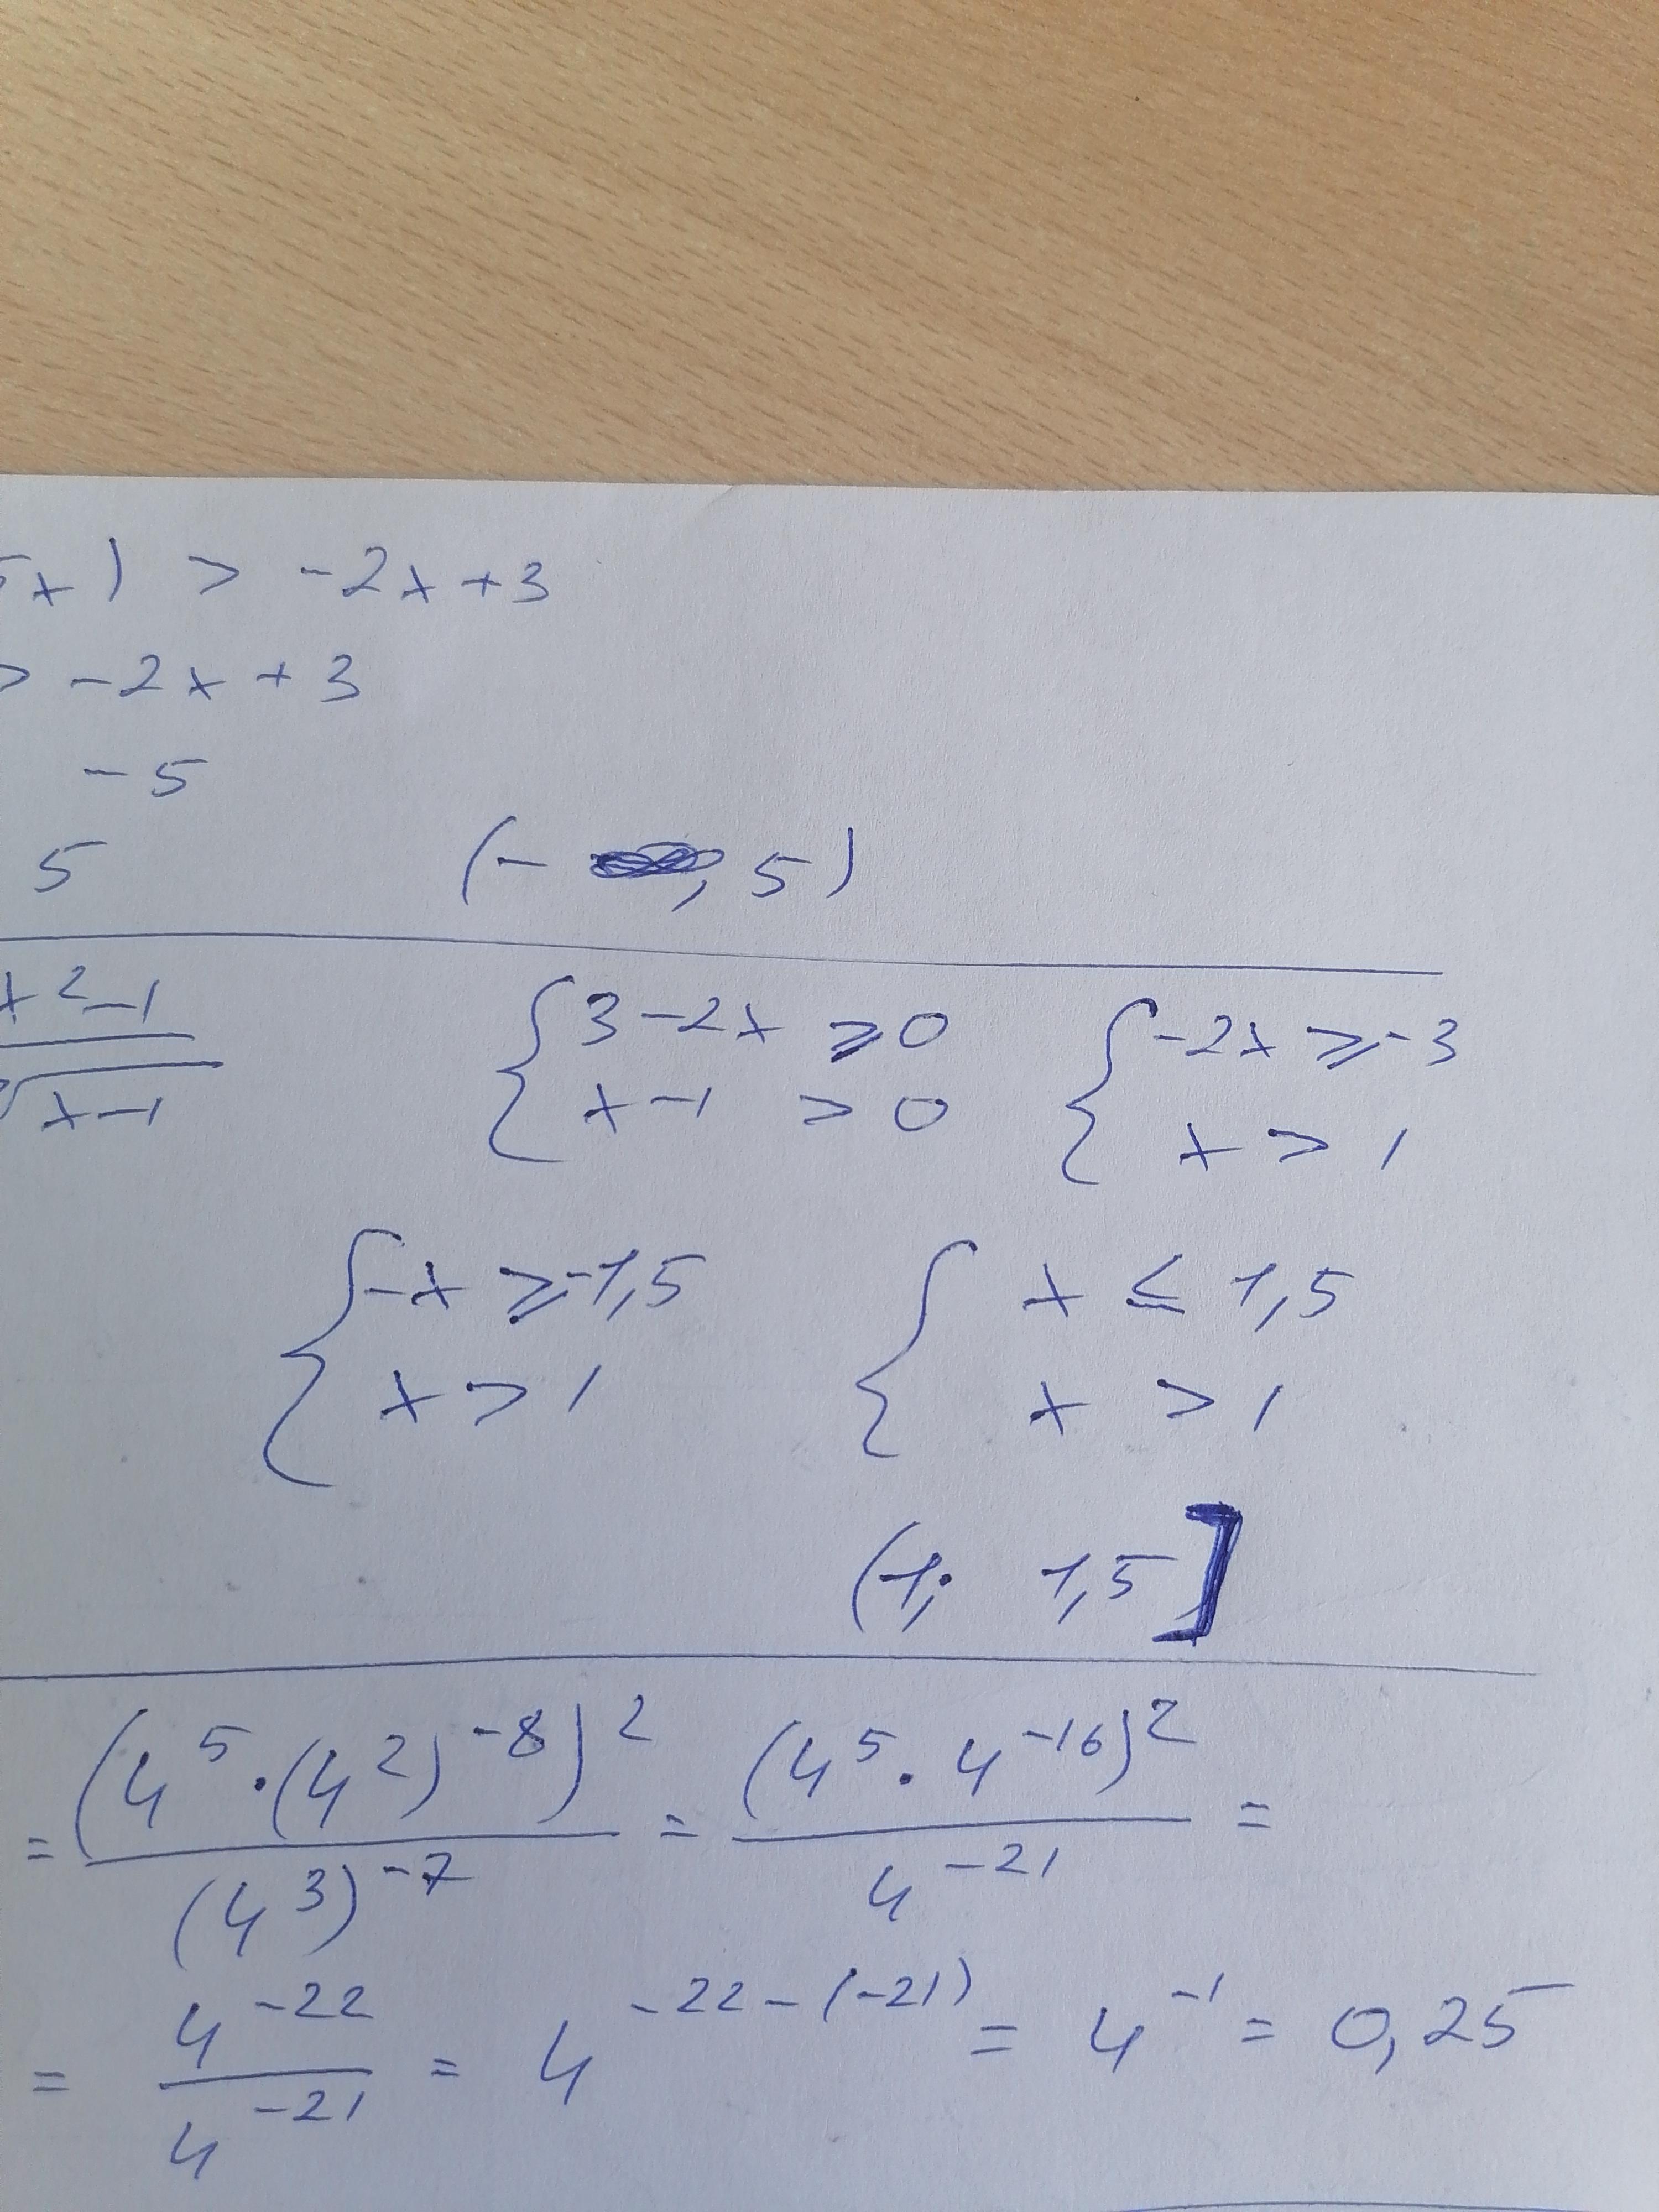 5x) > -2x + 3
> -2x + 3
-5
5 (- , 5)
x² - 1 / √(x - 1) { 3 - 2x ⩾ 0 { -2x ⩾ -3
x - 1 > 0 x > 1
{ -x ⩾ -1,5 { x ≤ 1,5
x > 1 x > 1
(1; 1,5]
= (4⁵ · (4²)⁻⁸)² / (4³)⁻⁷ = (4⁵ · 4⁻¹⁶)² / 4⁻²¹ =
= 4⁻²² / 4⁻²¹ = 4⁻²²⁻⁽⁻²¹⁾ = 4⁻¹ = 0,25